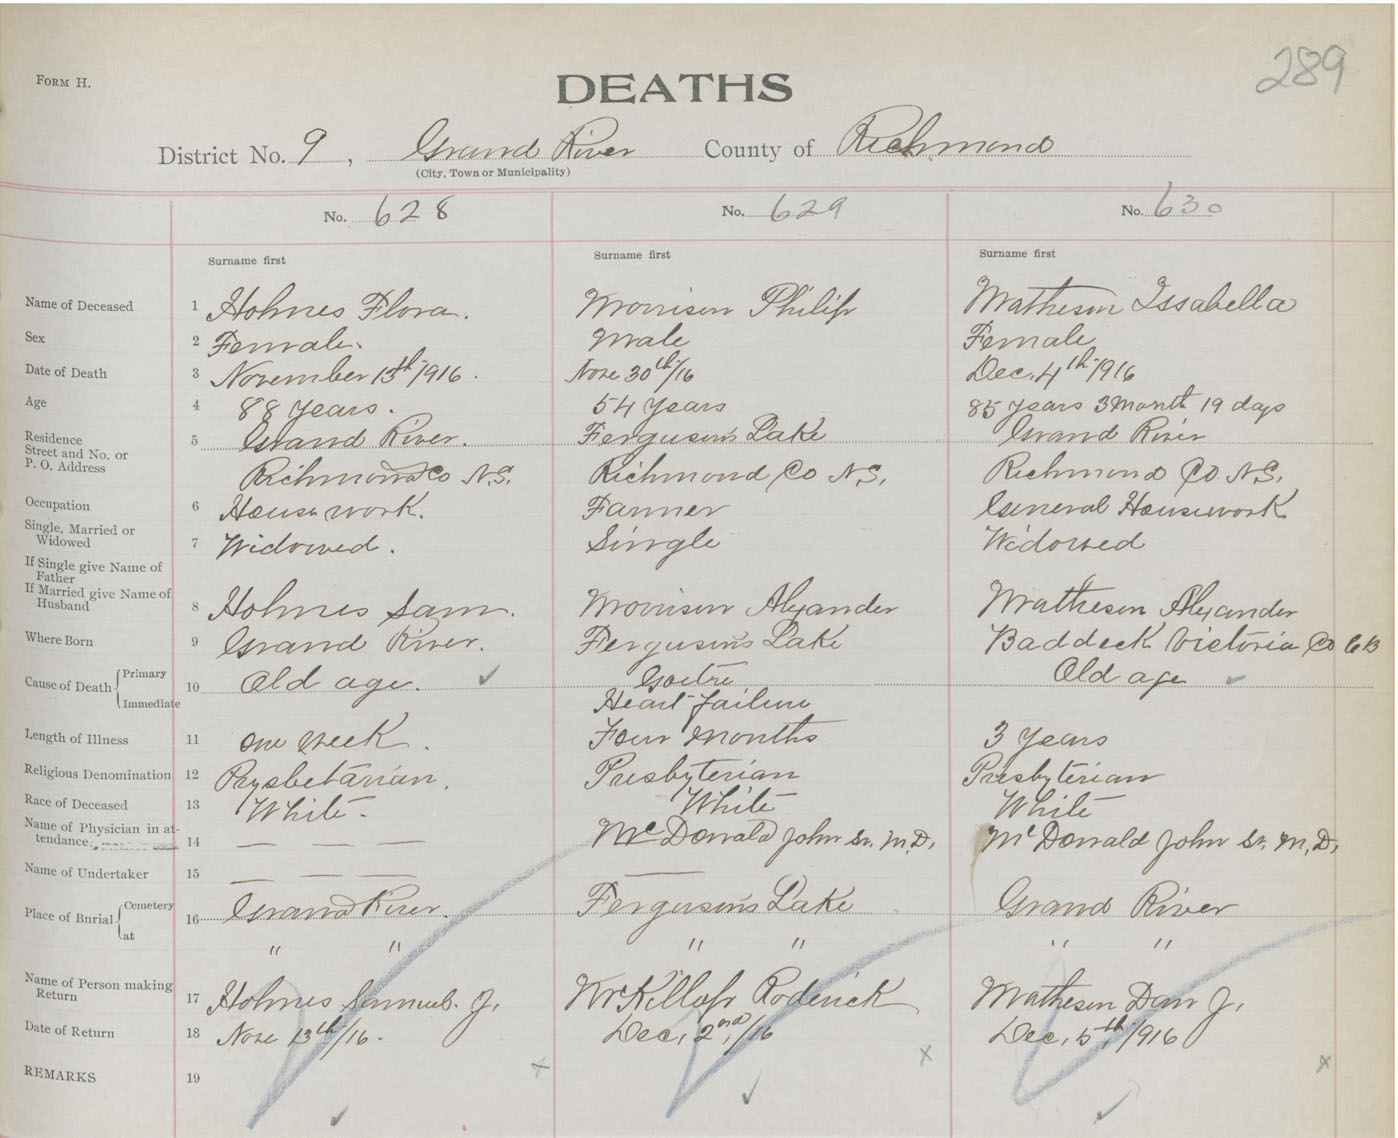 289
FORM H.
DEATHS
District No. 9, Grand River County of Richmond
(City, Town or Municipality)
No. 628 No. 629 No. 630
Surname first Surname first Surname first
Name of Deceased 1 Holmes Flora. Morrison Philip Matheson Issabella
Sex 2 Female. Male Female
Date of Death 3 November 13th 1916. Nove 30th/16 Dec. 4th 1916
Age 4 88 years. 54 years 85 years 3 month 19 days
Residence 5 Grand River. Ferguson's Lake Grand River
Street and No. or
P. O. Address Richmond Co N.S. Richmond Co N.S. Richmond Co N.S.
Occupation 6 House work. Farmer General Housework
Single, Married or
Widowed 7 Widowed. Single Widowed
If Single give Name of
Father
If Married give Name of
Husband 8 Holmes Sam. Morrison Alexander Matheson Alexander
Where Born 9 Grand River. Ferguson's Lake Baddeck Victoria Co CB
Cause of Death Primary 10 Old age. Goitre Old age
Immediate Heart failure
Length of Illness 11 one week. Four months 3 years
Religious Denomination 12 Prysbetarian. Presbyterian Presbyterian
Race of Deceased 13 White. White White
Name of Physician in at-
tendance 14 — — — McDonald John Sr. M.D. McDonald John Sr. M.D.
Name of Undertaker 15 — — — —
Place of Burial Cemetery 16 Grand River. Ferguson's Lake Grand River
at " " " " " "
Name of Person making
Return 17 Holmes Samuel J. McKillop Roderick Matheson Dan J.
Date of Return 18 Nove 13th/16. Dec. 2nd/16 Dec. 5th, 1916
REMARKS 19